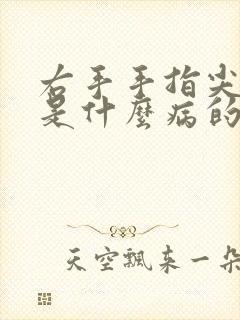 右手手指尖
是什麼病的
天空飄来一朵